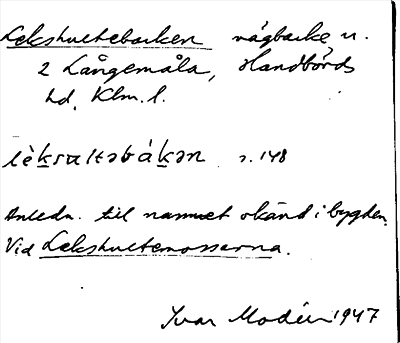 Lekshultebacken vägbacke n.
2 Långemåla, Handbörds
hd, Klm. l.
lèksultəbákən s. 148
Anledn. till namnet okänd i bygden.
Vid Lekshultemossarna.
Ivar Modéer 1947